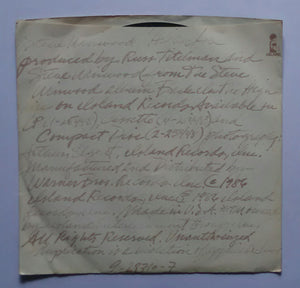 Steve Winwood
ISLAND
produced by Russ Titelman and
Steve Winwood from The Steve
Winwood album Back in the High
on Island Records. Available on
LP (1-25448), Cassette (4-25448) and
Compact Disc (2-25448) photography:
Island Records, Inc.
Manufactured and Distributed by
Warner Bros. Records Inc. ℗ 1986
Island Records, Inc. © 1986 Island
Records, Inc. Made in U.S.A.
All Rights Reserved. Unauthorized
duplication is a violation of applicable laws
9-28710-7